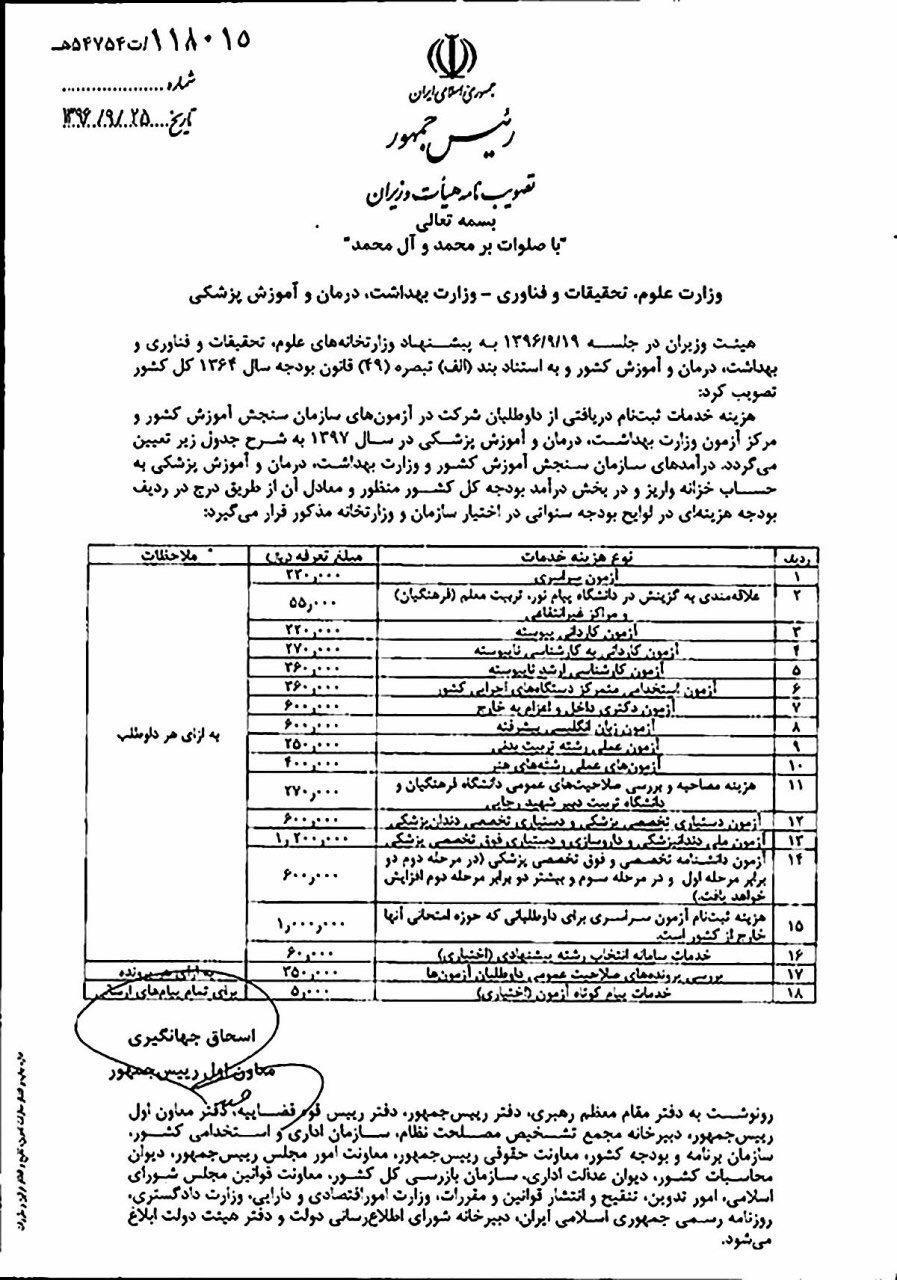 ۱۱۸۰۱۵/ت۵۴۷۵۴هـ
شماره ....................
تاریخ ....۱۳۹۶/۹/۲۵
جمهوری اسلامی ایران
رئیس جمهور
تصویب نامه هیأت وزیران
بسمه تعالی
"با صلوات بر محمد و آل محمد"
وزارت علوم، تحقیقات و فناوری – وزارت بهداشت، درمان و آموزش پزشکی
هیئت وزیران در جلسه ۱۳۹۶/۹/۱۹ به پیشنهاد وزارتخانه‌های علوم، تحقیقات و فناوری و
بهداشت، درمان و آموزش کشور و به استناد بند (الف) تبصره (۴۹) قانون بودجه سال ۱۳۶۴ کل کشور
تصویب کرد:
هزینه خدمات ثبت‌نام دریافتی از داوطلبان شرکت در آزمون‌های سازمان سنجش آموزش کشور و
مرکز آزمون وزارت بهداشت، درمان و آموزش پزشکی در سال ۱۳۹۷ به شرح جدول زیر تعیین
می‌گردد. درآمدهای سازمان سنجش آموزش کشور و وزارت بهداشت، درمان و آموزش پزشکی به
حساب خزانه واریز و در بخش درآمد بودجه کل کشور منظور و معادل آن از طریق درج در ردیف
بودجه هزینه‌ای در لوایح بودجه سنواتی در اختیار سازمان و وزارتخانه مذکور قرار می‌گیرد:
ردیف نوع هزینه خدمات مبلغ تعرفه (ریال) ملاحظات
۱ آزمون سراسری ۲۲۰٫۰۰۰
۲ علاقه‌مندی به گزینش در دانشگاه پیام نور، تربیت معلم (فرهنگیان)
و مراکز غیرانتفاعی ۵۵٫۰۰۰
۳ آزمون کاردانی پیوسته ۲۲۰٫۰۰۰
۴ آزمون کاردانی به کارشناسی ناپیوسته ۲۷۰٫۰۰۰
۵ آزمون کارشناسی ارشد ناپیوسته ۳۶۰٫۰۰۰
۶ آزمون استخدامی متمرکز دستگاه‌های اجرایی کشور ۳۶۰٫۰۰۰
۷ آزمون دکتری داخل و اعزام به خارج ۶۰۰٫۰۰۰
۸ آزمون زبان انگلیسی پیشرفته ۶۰۰٫۰۰۰
به ازای هر داوطلب
۹ آزمون عملی رشته تربیت بدنی ۲۵۰٫۰۰۰
۱۰ آزمون‌های عملی رشته‌های هنر ۴۰۰٫۰۰۰
۱۱ هزینه مصاحبه و بررسی صلاحیت‌های عمومی دانشگاه فرهنگیان و
دانشگاه تربیت دبیر شهید رجایی ۲۷۰٫۰۰۰
۱۲ آزمون دستیاری تخصصی پزشکی و دستیاری تخصصی دندانپزشکی ۶۰۰٫۰۰۰
۱۳ آزمون ملی دندانپزشکی و داروسازی و دستیاری فوق تخصصی پزشکی ۱٫۲۰۰٫۰۰۰
۱۴ آزمون دانشنامه تخصصی و فوق تخصصی پزشکی (در مرحله دوم دو
برابر مرحله اول و در مرحله سوم و بیشتر دو برابر مرحله دوم افزایش
خواهد یافت.) ۶۰۰٫۰۰۰
۱۵ هزینه ثبت‌نام آزمون سراسری برای داوطلبانی که حوزه امتحانی آنها
خارج از کشور است. ۱٫۰۰۰٫۰۰۰
۱۶ خدمات سامانه انتخاب رشته پیشنهادی (اختیاری) ۶۰٫۰۰۰
۱۷ بررسی پرونده‌های صلاحیت عمومی داوطلبان آزمون‌ها ۳۵۰٫۰۰۰ به ازای هر پرونده
۱۸ خدمات پیام کوتاه آزمون (اختیاری) ۵٫۰۰۰ برای تمام پیام‌های ارسالی
اسحاق جهانگیری
معاون اول رییس‌جمهور
رونوشت به دفتر مقام معظم رهبری، دفتر رییس‌جمهور، دفتر رییس قوه قضاییه، دفتر معاون اول
رییس‌جمهور، دبیرخانه مجمع تشخیص مصلحت نظام، سازمان اداری و استخدامی کشور،
سازمان برنامه و بودجه کشور، معاونت حقوقی رییس‌جمهور، معاونت امور مجلس رییس‌جمهور، دیوان
محاسبات کشور، دیوان عدالت اداری، سازمان بازرسی کل کشور، معاونت قوانین مجلس شورای
اسلامی، امور تدوین، تنقیح و انتشار قوانین و مقررات، وزارت امور اقتصادی و دارایی، وزارت دادگستری،
روزنامه رسمی جمهوری اسلامی ایران، دبیرخانه شورای اطلاع‌رسانی دولت و دفتر هیئت دولت ابلاغ
می‌شود.